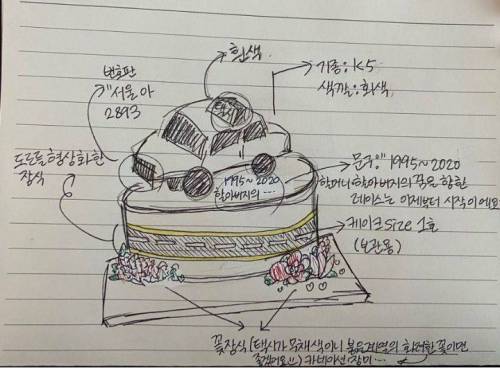 흰색
번호판
"서울 아
2893
기종: K5
색깔: 회색
도로를 형상화한
장식
문구: "1995~2020
할머니 할아버지의 꿈을 향한
레이스는 이제부터 시작이에요
1995~2020
할아버지의 ...
케이크 size 1호
(보관용)
꽃장식 (택시가 무채색이니 붉은계열의 화려한 꽃이면
좋겠어요!!) 카네이션, 장미 ...